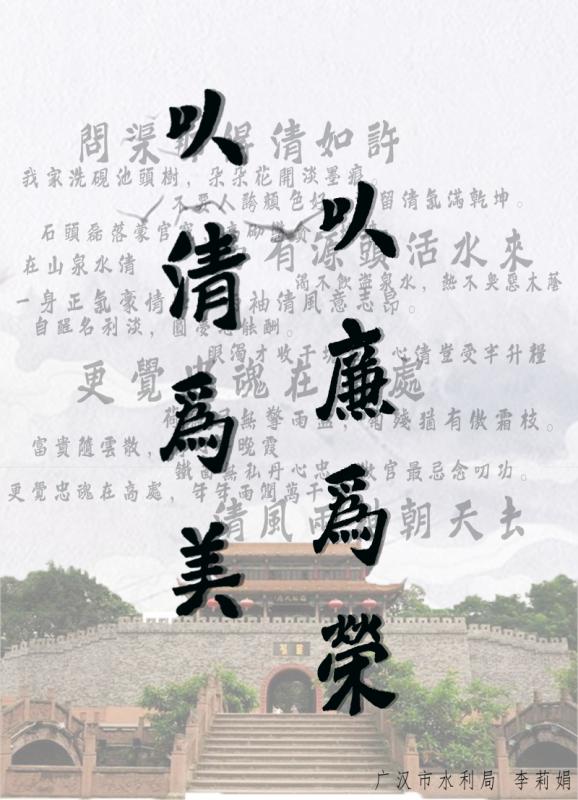 以清為美
以廉為榮
問渠 得清如許
我家洗硯池頭樹，朵朵花開淡墨痕。
不要人誇顏色好 留清氣滿乾坤。
石頭磊落蒙官
有源頭活水來
在山泉水清
渴不飲盜泉水，熱不臭惡木蔭
一身正氣豪情 袖清風意志昂。
自醒名利淡，圓
眼濁才收干 心清豈受半升糧
更覺 魂在 處
無擎雨蓋，菊殘猶有傲霜枝。
富貴隨雲散， 晚霞
鐵面無私丹心忠，做官最忌念叨功。
更覺忠魂在高處，年年雨潤萬千
清風兩袖朝天去
广汉市水利局 李莉娟